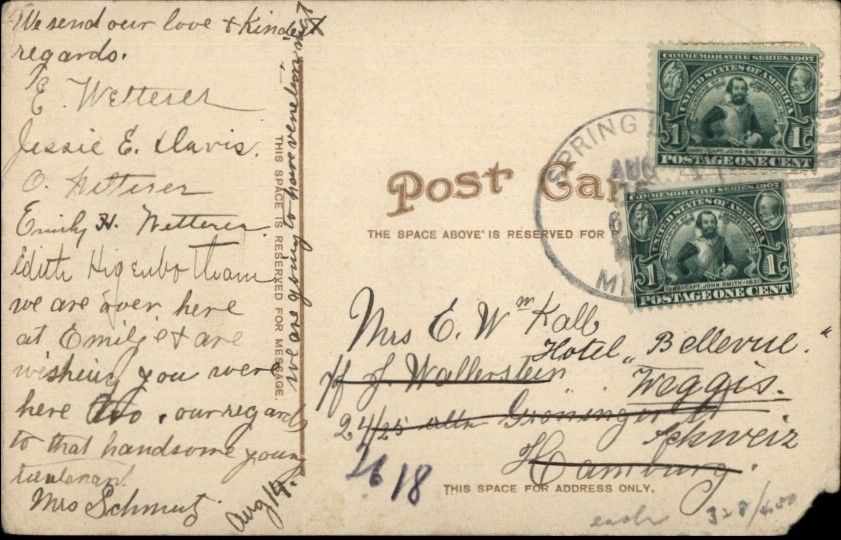 We send our love & kindest
regards.
E. Wetterer
Jessie E. Davis.
O. Wetterer
Emily H. Wetterer.
Edith Higenbotham
we are over here
at Emilie & are
wishing you were
here too. our regards
to that handsome young
lieutenant
Mrs Schmutz
Aug 14.
we are going to have venetian night
THIS SPACE IS RESERVED FOR MESSAGE.
Post Card
THE SPACE ABOVE IS RESERVED FOR P
SPRING L
AUG
6
MI
COMMEMORATIVE SERIES 1907
UNITED STATES OF AMERICA
1 1
1580 CAPT. JOHN SMITH 1631
POSTAGE ONE CENT
COMMEMORATIVE SERIES 1907
UNITED STATES OF AMERICA
1 1
1580 CAPT. JOHN SMITH 1631
POSTAGE ONE CENT
Mrs E. Wm Kalb
Hotel „Bellevue.“
J. Wallerstein
Weggis.
24/25 alte Gröninger
Schweiz
Hamburg.
18
THIS SPACE FOR ADDRESS ONLY.
each 328/400